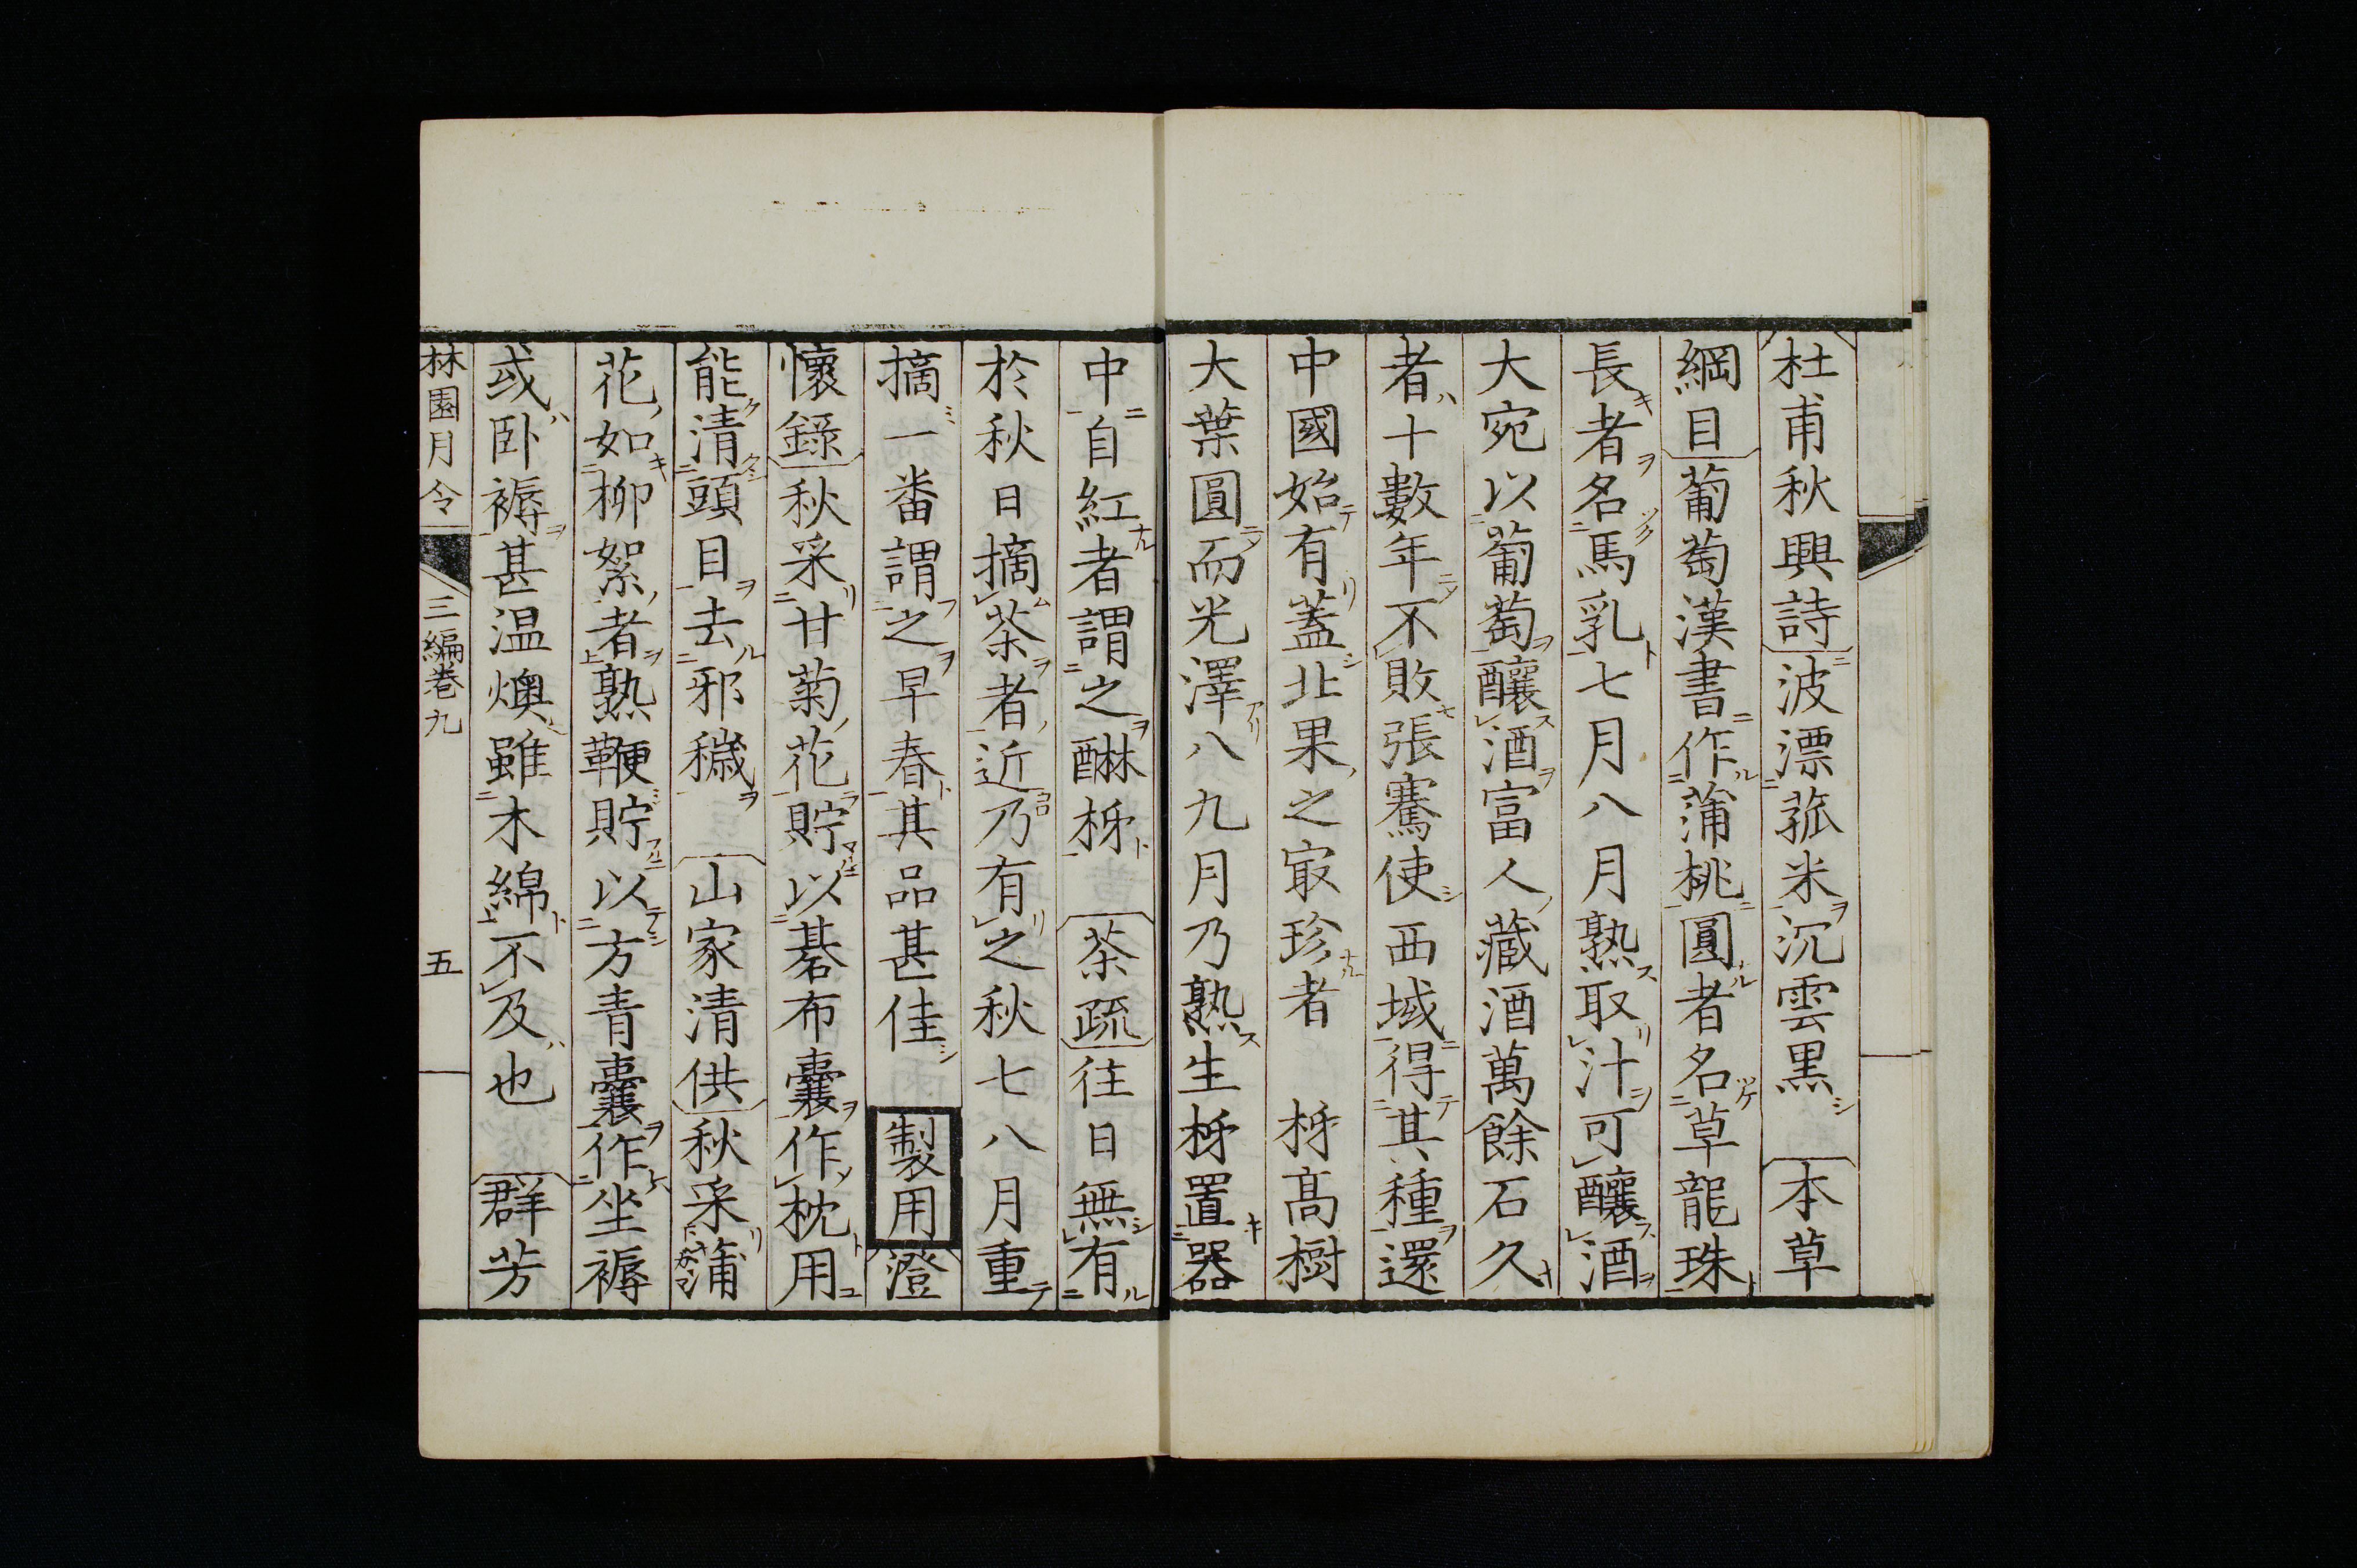 杜甫秋興詩波漂菰米沉雲黒　本草
綱目葡萄漢書作蒲桃圓者名草龍珠
長者名馬乳七月八月熟取汁可釀酒
大宛以葡萄釀酒富人藏酒萬餘石久
者十數年不敗張騫使西域得其種還
中國始有蓋北果之㝡珍者　柹高樹
大葉圓而光澤八九月乃熟生柹置器
中自紅者謂之醂柹　茶疏往日無有
於秋日摘茶者近乃有之秋七八月重
摘一番謂之早春其品甚佳　製用澄
懷錄秋采甘菊花貯以碁布囊作枕用
能清頭目去邪穢　山家清供秋采蒲
花如柳絮者熟鞭貯以方青囊作坐褥
或卧褥甚温燠雖木綿不及也　群芳
林園月令　三編卷九　五